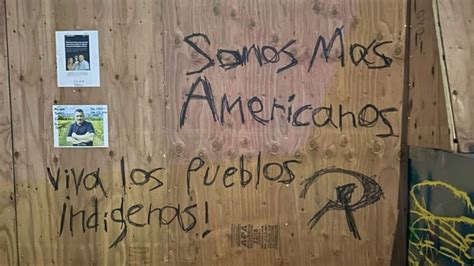 Somos Mas
Americanos
Viva los Pueblos
indigenas!
APA